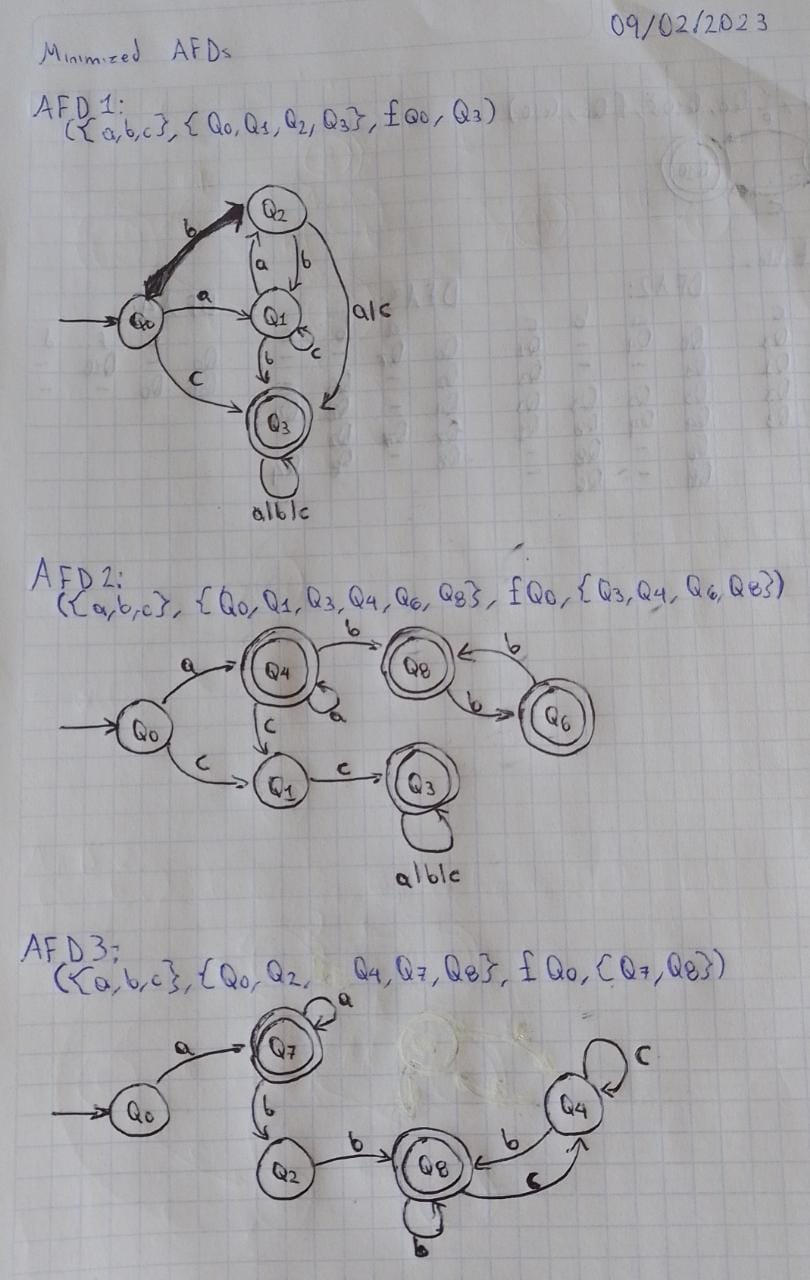 09/02/2023
Minimized AFDs
AFD 1:
({a,b,c}, { Q0, Q1, Q2, Q3}, f Q0, Q3)
Q2
b
a
b
Q0
a
Q1
a/c
c
b
c
Q3
a/b/c
AFD 2:
({a,b,c}, {Q0, Q1, Q3, Q4, Q6, Q8}, f Q0, {Q3, Q4, Q6, Q8})
b
b
a
Q4
Q8
a
b
Q6
Q0
c
c
Q1
c
Q3
a/b/c
AFD 3:
({a,b,c}, {Q0, Q2, Q4, Q7, Q8}, f Q0, {Q7, Q8})
a
a
Q7
c
Q0
b
Q4
b
b
Q2
Q8
c
b